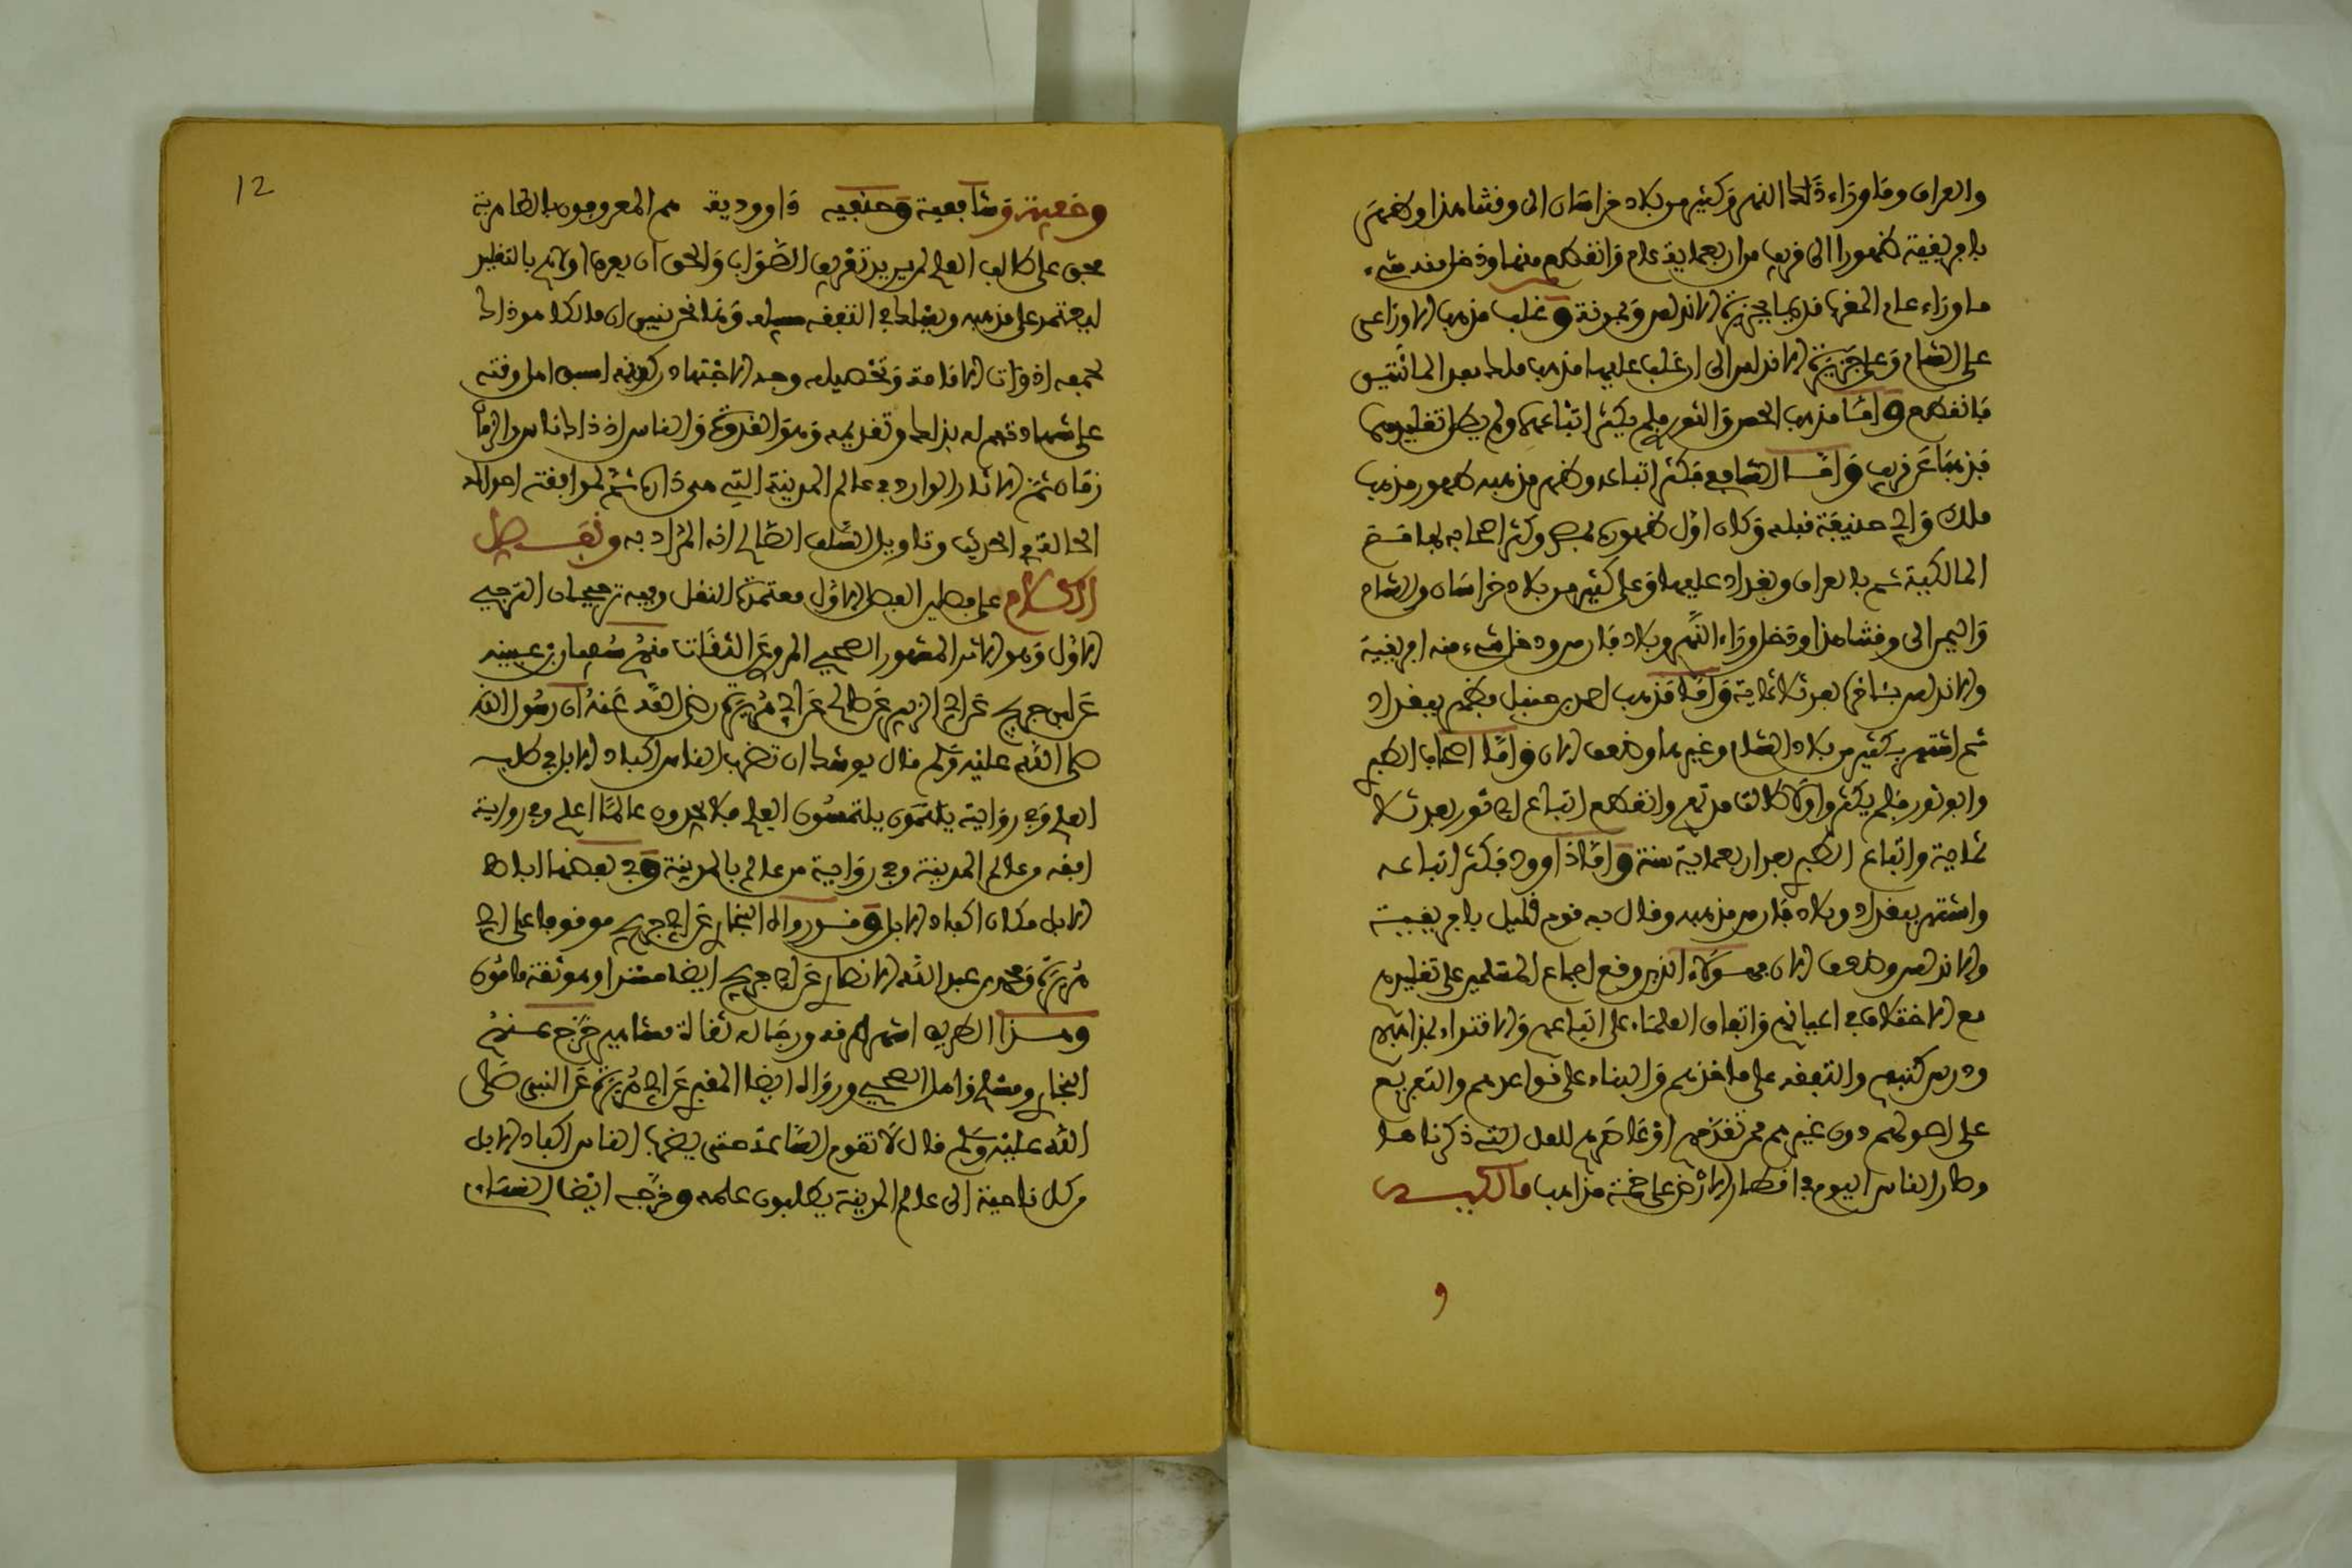 والعراق وما وراء ذلك النهر وكثير من بلاد خراسان الى وقتنا هذا وظهر
بافريقية ظهورا الى قريب من اربعماية عام وانقطع منها ودخل منه شيء
ما وراءها من المغرب قديما بجزيرة الاندلس وبمدينة وغلب مذهب الاوزاعي
على الشام وعلى جزيرة الاندلس الى ان غلب عليها مذهب ملك بعد المائتين
فانقطع وامـا مذهب الحسن والثوري فلم يكثر اتباعهما ولم يطل تقليدهما
فذهبا عن قريب وامـا الشافعي فكثر اتباعه وظهر مذهبه ظهور مذهب
ملك وابي حنيفة قبله وكان اول ظهوره بمصر وكثر اصحابه بها مـع
المالكية ثم بالعراق وبغداد عليهما وعلى كثير من بلاد خراسان والشام
واليمن الى وقتنا هذا ودخل وراء النهر وبلاد فارس ودخل شيء منه افريقية
والاندلس بـاخرة بعد ثلاثماية وامـا مذهب احمد بن حنبل فظهر ببغداد
ثم انتشر بكثير من بلاد الشام وغيرها وضعف الان وامـا اصحاب الطبري
وابو ثور فلم يكثروا ولا طالت مدتهم وانقطع اتباع ابي ثور بعد ثلا
ثماية واتباع الطبري بعد اربعماية سنة وامـا داوود فكثر اتباعـه
وانتشر ببغداد وبلاد فارس مذهبه وقال به قوم قليل بافريقيـة
والاندلس وضعف الان فهـؤلاء الذين وقع اجماع المسلمين على تقليدهم
مع الاختلاف في اعيانهم واتفاق العلماء على اتباعهم والاقتداء بمذاهبهم
ودرس كتبهم والتفقه على ماخذهم والبناء على قواعدهم والتفريع
على اصولهم دون غيرهم ممن تقدمهم او عاصرهم للعلل التي ذكرناهـا
وصار الناس اليوم في اقطار الارض على خمسة مذاهب مالكيـة
و
12
وشافعية وحنفيه داووديـة هم المعروفون بالظاهرية
فحق على طالب العلم لمن يريد تعرف الصواب والحق ان يعرف اولاهم بالتقليد
ليعتمد على مذهبه ويسلك في التفقه سبيله وها نحن نبين ان مالكا هو ذلك
لجمعه ادوات الامامة وتحصيله وجه الاجتهاد وكونه اسبق اهل وقته
على شهادتهم له بذلك وتقديمه وهو القدوة والناس اذ ذاك ناس والزمان
زمان ثمت الاثار الوارد في عالم المدينة التي هي داره ثم لموافقة احواله
الحالة في الحديث وتاويل السلف الصالح انه المراد به ونفـصل
الكـلام على فصلين الفصل الاول معتمدة النقل وفيه ترجيحان الترجيح
الاول وهو الاثر المشهور الصحيح المروي عن الثقات منهم سفيان بن عيينه
عن ابن جريج عن ابي الزبير عن ابي صالح عن ابي هريرة رضي الله عنه ان رسول الله
صلى الله عليه وسلم قال يوشك ان تضرب الناس اكباد الابل في طلب
العلم وفي رواية يلتمسون العلم فلا يجدون عالما اعلم وفي رواية
افقه من عالم المدينة وفي رواية من عالم بالمدينة وفي بعضها اباط
الابل مكان اكباد الابل وقـد رواه البخاري عن ابن جريج موقوفا على ابي
هريرة ومحمد بن عبد الله الانصاري عن ابن جريج ايضا مسندا وهو ثقة مامون
وهـذا الطريق اشهر طرقه ورجاله ثقات مشاهير خرج عنهم
البخاري ومسلم واهل الصحيح ورواه ايضا المقبري عن ابي هريرة عن النبي صلى
الله عليه وسلم قال لا تقوم الساعة حتى يضرب الناس اكباد الابل
من كل ناحية الى عالم المدينة يطلبون علمه وخرجـه ايضا النسائي